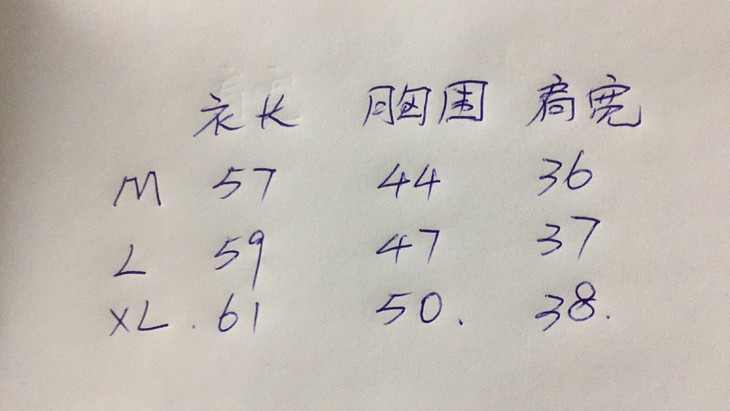 衣长 胸围 肩宽
M 57 44 36
L 59 47 37
XL. 61 50. 38.